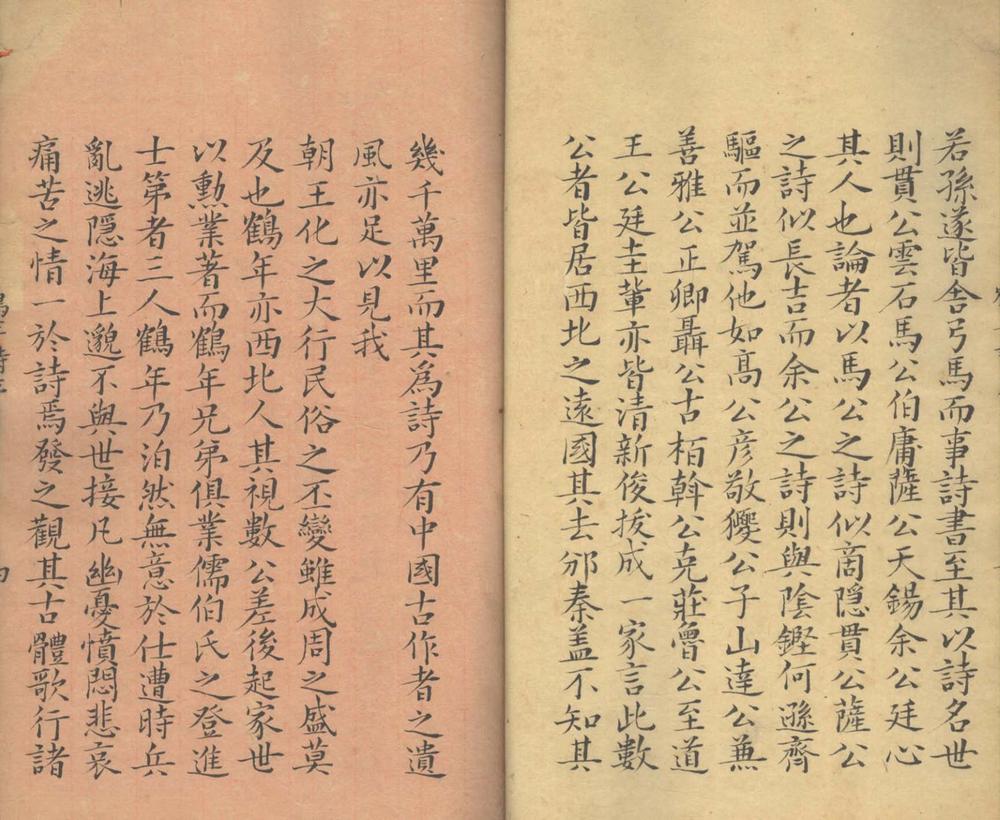 若孫遂皆舍弓馬而事詩書至其以詩名世
則貫公雲石馬公伯庸薩公天錫余公廷心
其人也論者以馬公之詩似商隐貫公薩公
之詩似長吉而余公之詩則與陰鏗何遜齊
驅而並駕他如高公彦敬㺜公子山達公兼
善雅公正卿聶公古栢斡公克莊魯公至道
王公廷圭輩亦皆清新俊拔成一家言此數
公者皆居西北之逺國其去邠秦盖不知其
幾千萬里而其為詩乃有中國古作者之遺
風亦足以見我
朝王化之大行民俗之丕變雖成周之盛莫
及也鶴年亦西北人其視數公差後起家世
以勳業著而鶴年兄弟俱業儒伯氏之登進
士第者三人鶴年乃泊然無意於仕遭時兵
亂逃隱海上邈不與世接凡幽憂憤悶悲哀
痛苦之情一於詩焉發之觀其古體歌行諸